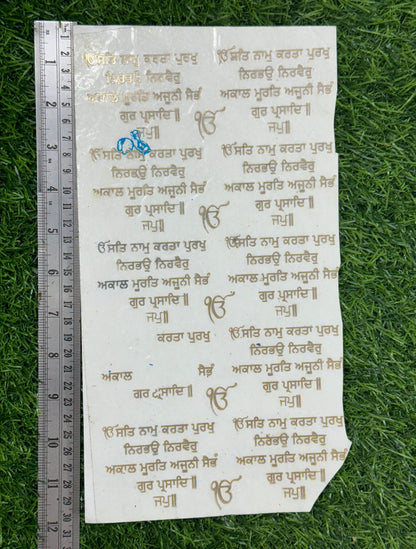 ੴਸਤਿ ਨਾਮੁ ਕਰਤਾ ਪੁਰਖੁ
ਨਿਰਭਉ ਨਿਰਵੈਰੁ
ਅਕਾਲ ਮੂਰਤਿ ਅਜੂਨੀ ਸੈਭੰ
ਗੁਰ ਪ੍ਰਸਾਦਿ॥
ਜਪੁ॥
ੴਸਤਿ ਨਾਮੁ ਕਰਤਾ ਪੁਰਖੁ
ਨਿਰਭਉ ਨਿਰਵੈਰੁ
ਅਕਾਲ ਮੂਰਤਿ ਅਜੂਨੀ ਸੈਭੰ
ਗੁਰ ਪ੍ਰਸਾਦਿ॥
ਜਪੁ॥
ੴ
ੴਸਤਿ ਨਾਮੁ ਕਰਤਾ ਪੁਰਖੁ
ਨਿਰਭਉ ਨਿਰਵੈਰੁ
ਅਕਾਲ ਮੂਰਤਿ ਅਜੂਨੀ ਸੈਭੰ
ਗੁਰ ਪ੍ਰਸਾਦਿ॥
ਜਪੁ॥
ੴਸਤਿ ਨਾਮੁ ਕਰਤਾ ਪੁਰਖੁ
ਨਿਰਭਉ ਨਿਰਵੈਰੁ
ਅਕਾਲ ਮੂਰਤਿ ਅਜੂਨੀ ਸੈਭੰ
ਗੁਰ ਪ੍ਰਸਾਦਿ॥
ਜਪੁ॥
ੴ
ੴਸਤਿ ਨਾਮੁ ਕਰਤਾ ਪੁਰਖੁ
ਨਿਰਭਉ ਨਿਰਵੈਰੁ
ਅਕਾਲ ਮੂਰਤਿ ਅਜੂਨੀ ਸੈਭੰ
ਗੁਰ ਪ੍ਰਸਾਦਿ॥
ਜਪੁ॥
ੴਸਤਿ ਨਾਮੁ ਕਰਤਾ ਪੁਰਖੁ
ਨਿਰਭਉ ਨਿਰਵੈਰੁ
ਅਕਾਲ ਮੂਰਤਿ ਅਜੂਨੀ ਸੈਭੰ
ਗੁਰ ਪ੍ਰਸਾਦਿ॥
ਜਪੁ॥
ੴ
ਕਰਤਾ ਪੁਰਖੁ
ਅਕਾਲ ਸੈਭੰ
ਗੁਰ ਪ੍ਰਸਾਦਿ॥
ੴਸਤਿ ਨਾਮੁ ਕਰਤਾ ਪੁਰਖੁ
ਨਿਰਭਉ ਨਿਰਵੈਰੁ
ਅਕਾਲ ਮੂਰਤਿ ਅਜੂਨੀ ਸੈਭੰ
ਗੁਰ ਪ੍ਰਸਾਦਿ॥
ਜਪੁ॥
ੴ
ੴਸਤਿ ਨਾਮੁ ਕਰਤਾ ਪੁਰਖੁ
ਨਿਰਭਉ ਨਿਰਵੈਰੁ
ਅਕਾਲ ਮੂਰਤਿ ਅਜੂਨੀ ਸੈਭੰ
ਗੁਰ ਪ੍ਰਸਾਦਿ॥
ਜਪੁ॥
ੴਸਤਿ ਨਾਮੁ ਕਰਤਾ ਪੁਰਖੁ
ਨਿਰਭਉ ਨਿਰਵੈਰੁ
ਅਕਾਲ ਮੂਰਤਿ ਅਜੂਨੀ ਸੈਭੰ
ਗੁਰ ਪ੍ਰਸਾਦਿ॥
ਜਪੁ॥
ੴ